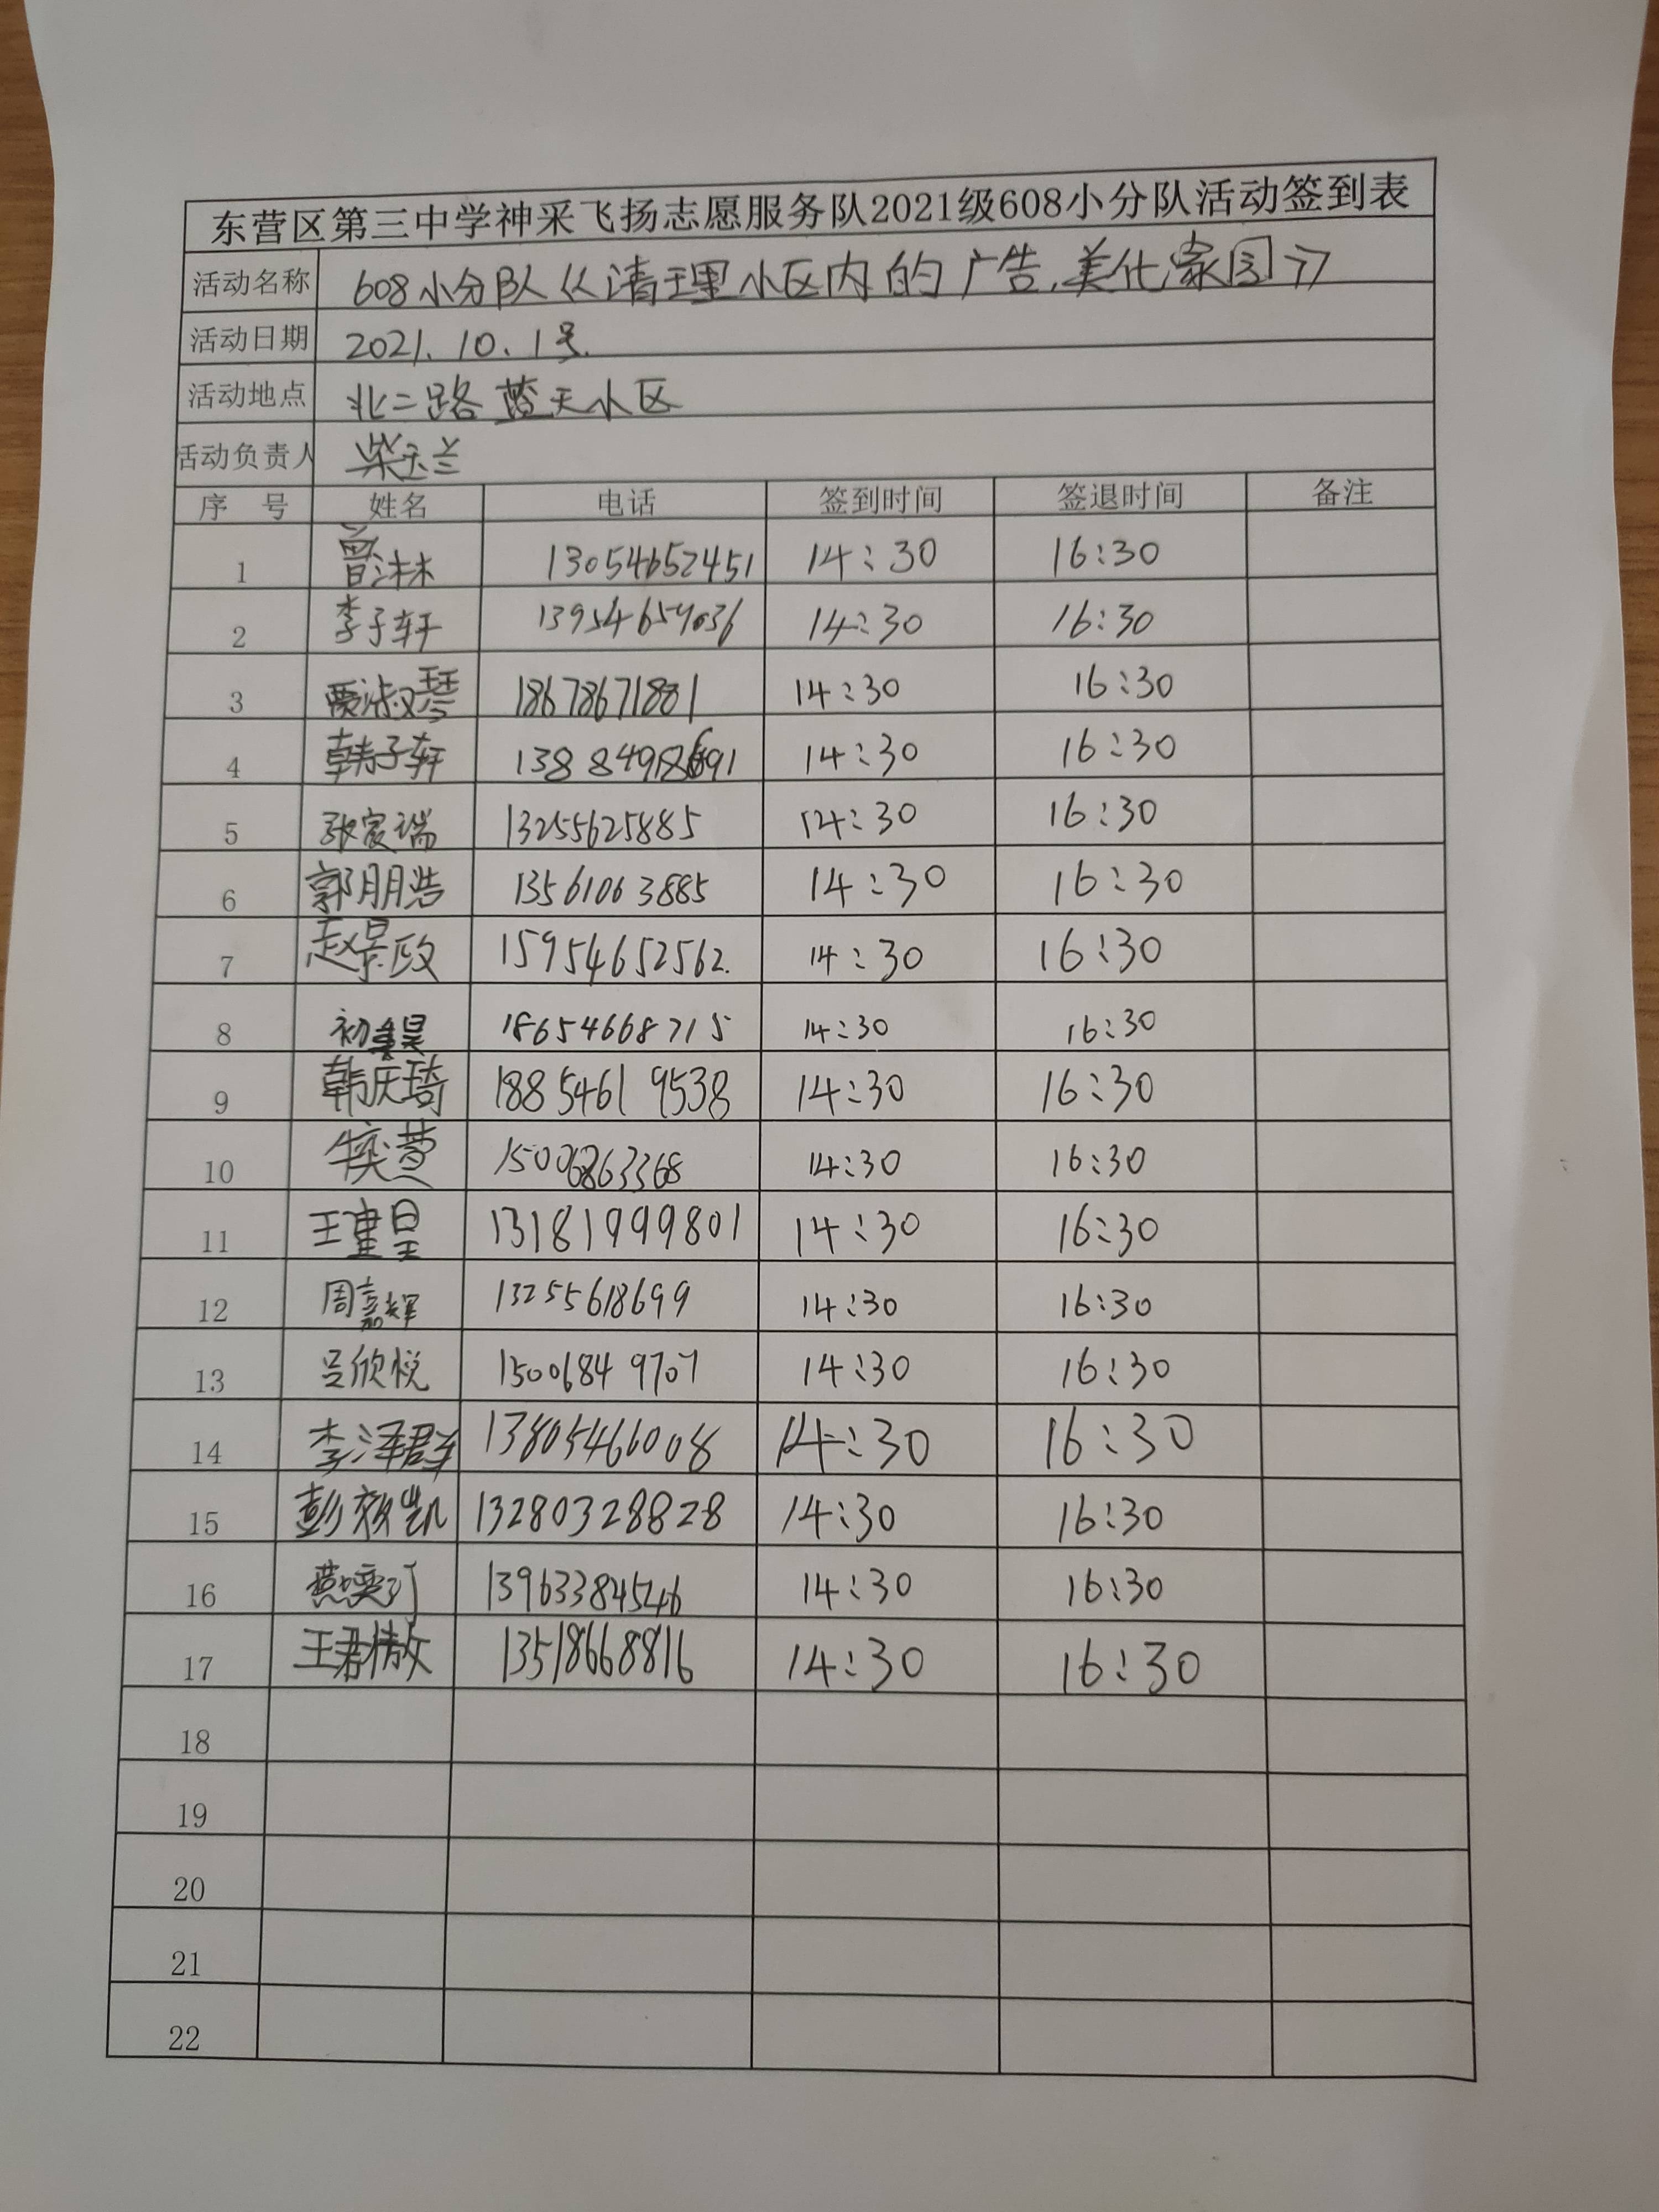 东营区第三中学神采飞扬志愿服务队2021级608小分队活动签到表
活动名称 608小分队《清理小区内的广告,美化家园》
活动日期 2021.10.1号.
活动地点 北二路蓝天小区
活动负责人 柴玉兰
序 号 姓名 电话 签到时间 签退时间 备注
1 曾沐林 13054652451 14:30 16:30
2 李子轩 13954659036 14:30 16:30
3 贾淑琴 18678671881 14:30 16:30
4 韩子轩 14:30 16:30
5 张宸瑞 13255625885 14:30 16:30
6 郭朋浩 13561063885 14:30 16:30
7 赵景政 15954652562. 14:30 16:30
8 18654668715 14:30 16:30
9 韩庆琦 18854619538 14:30 16:30
10 15006863368 14:30 16:30
11 王建昱 13181999801 14:30 16:30
12 周嘉辉 13255618699 14:30 16:30
13 吕欣悦 15006849707 14:30 16:30
14 李泽群 13805466008 14:30 16:30
15 13280328828 14:30 16:30
16 13963384546 14:30 16:30
17 13518668816 14:30 16:30
18
19
20
21
22